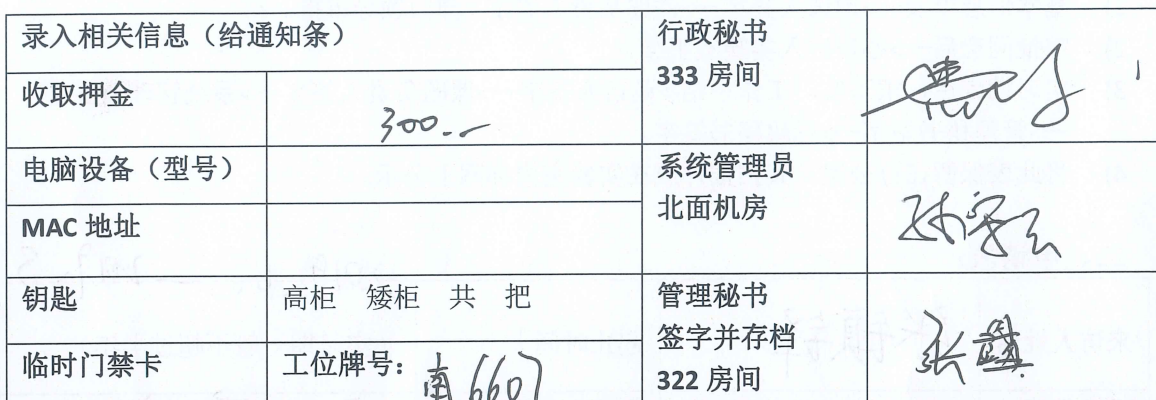 录入相关信息（给通知条）
行政秘书
333 房间
收取押金
300.--
电脑设备（型号）
系统管理员
北面机房
MAC 地址
钥匙
高柜 矮柜 共 把
管理秘书
签字并存档
322 房间
临时门禁卡
工位牌号：南6607